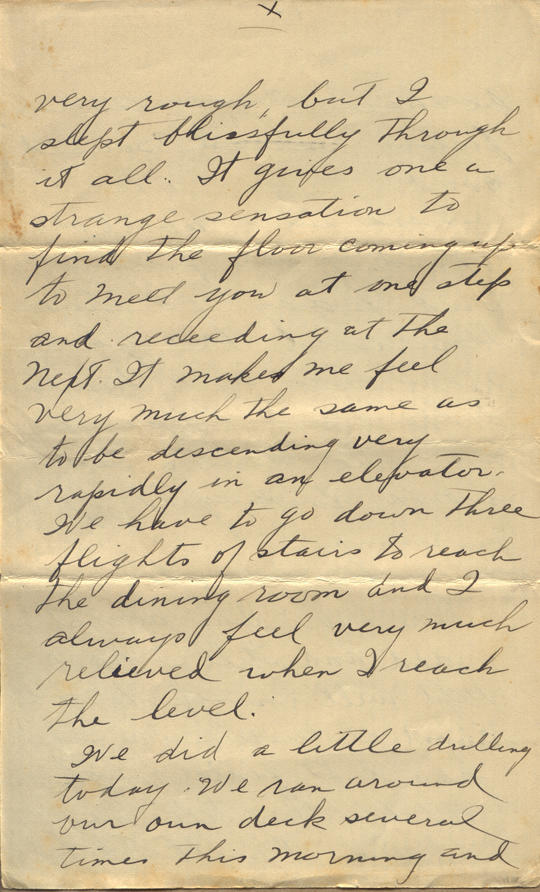 X
very rough, but I
slept blissfully through
it all. It gives one a
strange sensation to
find the floor coming up
to meet you at one step
and receeding at the
next. It makes me feel
very much the same as
to be descending very
rapidly in an elevator.
We have to go down three
flights of stairs to reach
the dining room and I
always feel very much
relieved when I reach
the level.
We did a little drilling
today. We ran around
our own deck several
times this morning and